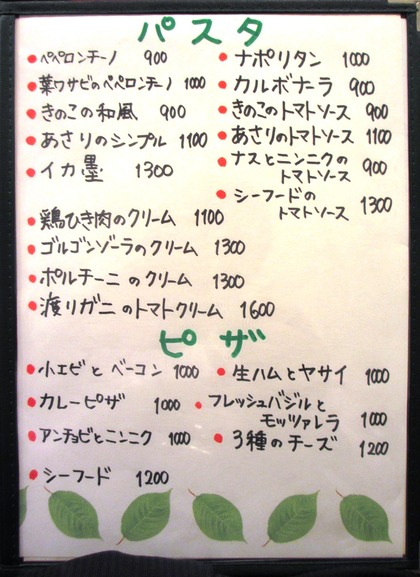 パスタ
ペペロンチーノ 900
葉ワサビのペペロンチーノ 1000
きのこの和風 900
あさりのシンプル 1100
イカ墨 1300
ナポリタン 1000
カルボナーラ 900
きのこのトマトソース 900
あさりのトマトソース 1100
ナスとニンニクの
トマトソース 900
シーフードの
トマトソース 1300
鶏ひき肉のクリーム 1100
ゴルゴンゾーラのクリーム 1300
ポルチーニのクリーム 1300
渡りガニのトマトクリーム 1600
ピザ
小エビとベーコン 1000
カレーピザ 1000
アンチョビとニンニク 1000
シーフード 1200
生ハムとヤサイ 1000
フレッシュバジルと
モッツァレラ 1000
3種のチーズ 1200